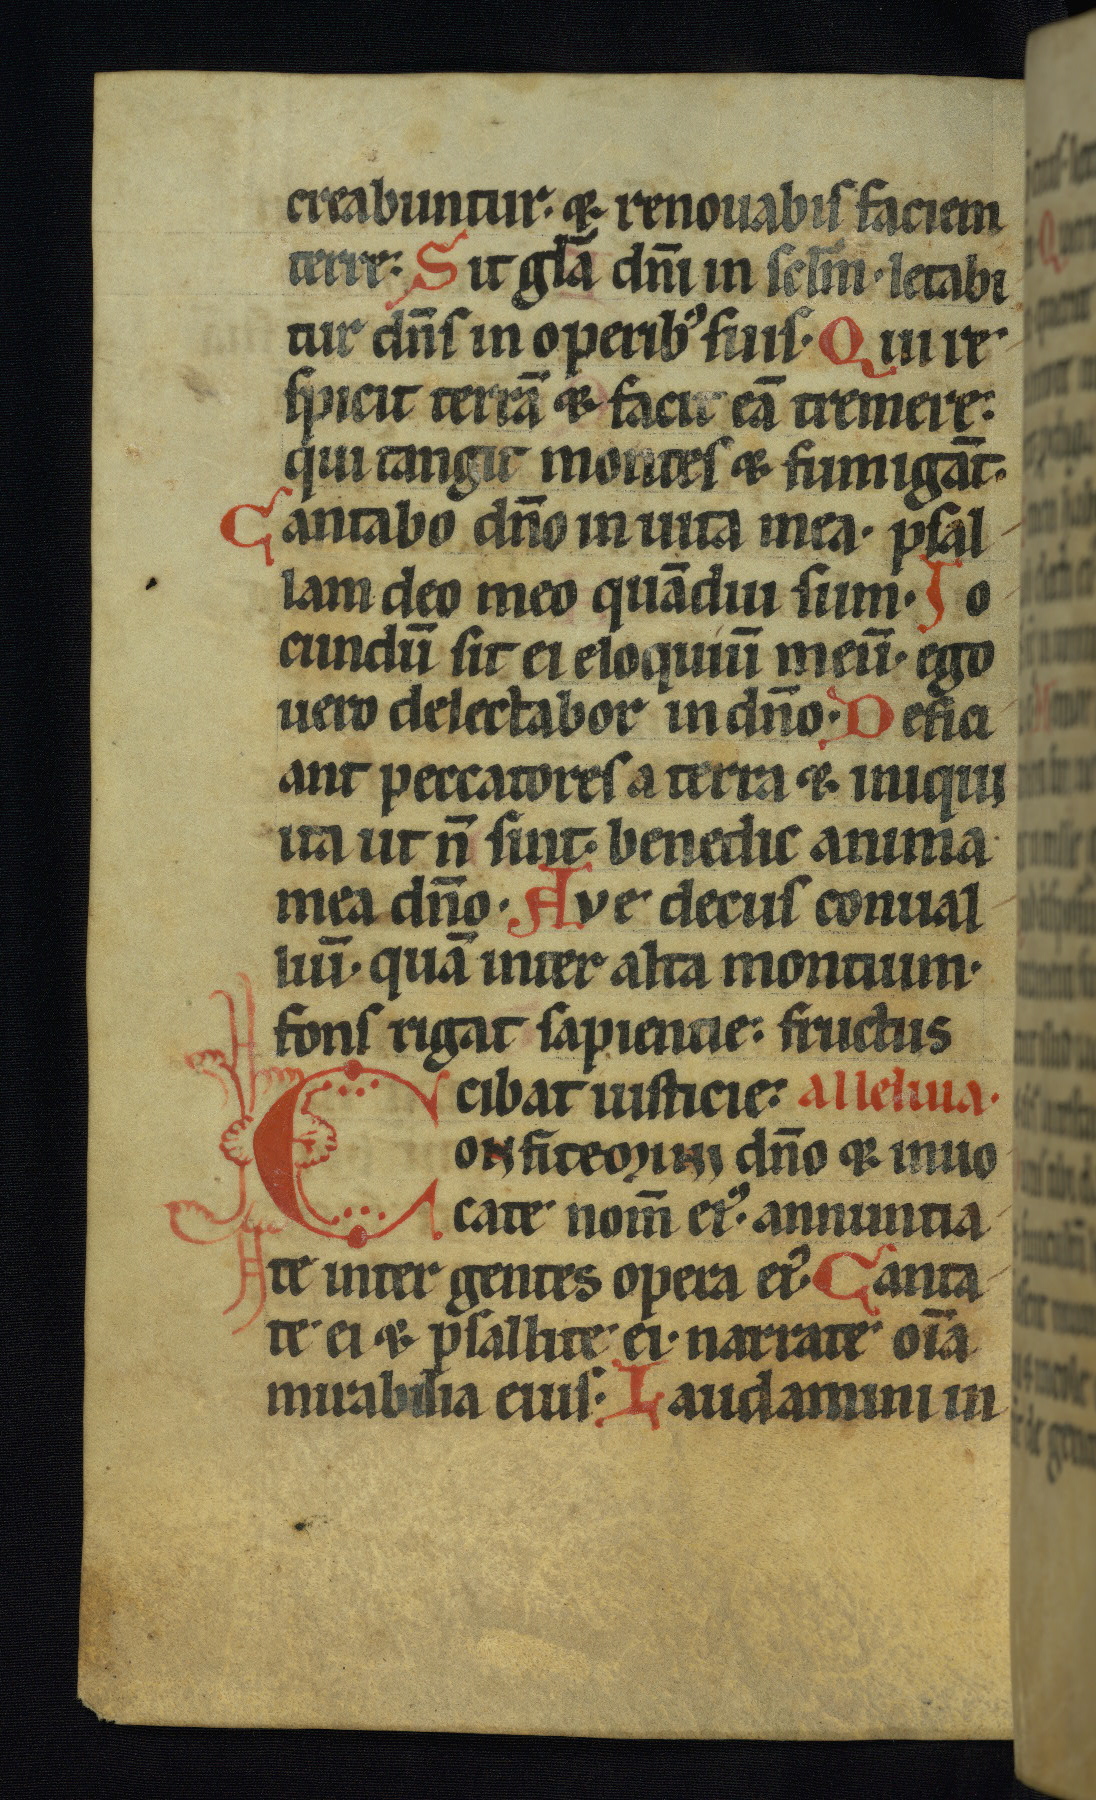 creabuntur· & renouabis faciem
terre: Sit gl̄a dn̄i in sclm̄· letabi
tur dn̄s in operib⁹ suis· Qui re
spicit terrā & facit eā tremere:
qui tangit montes & fumigāt·
Cantabo dn̄o in uita mea· psal
lam deo meo quādiu sum· Io
cundū sit ei eloquiū meū· ego
uero delectabor in dn̄o· Defici
ant peccatores a terra & iniqui
ita ut n̄ sint· benedic anima
mea dn̄o· Ave decus conual
liū· quā inter alta montium·
fons rigat sapientie: fructus
cibat iusticie: alleluia·
Confitemini dn̄o & inuo
cate nom̄ ei⁹· annuntia
te inter gentes opera ei⁹· Canta
te ei & psallite ei· narrate oīa
mirabilia eius: Laudamini in